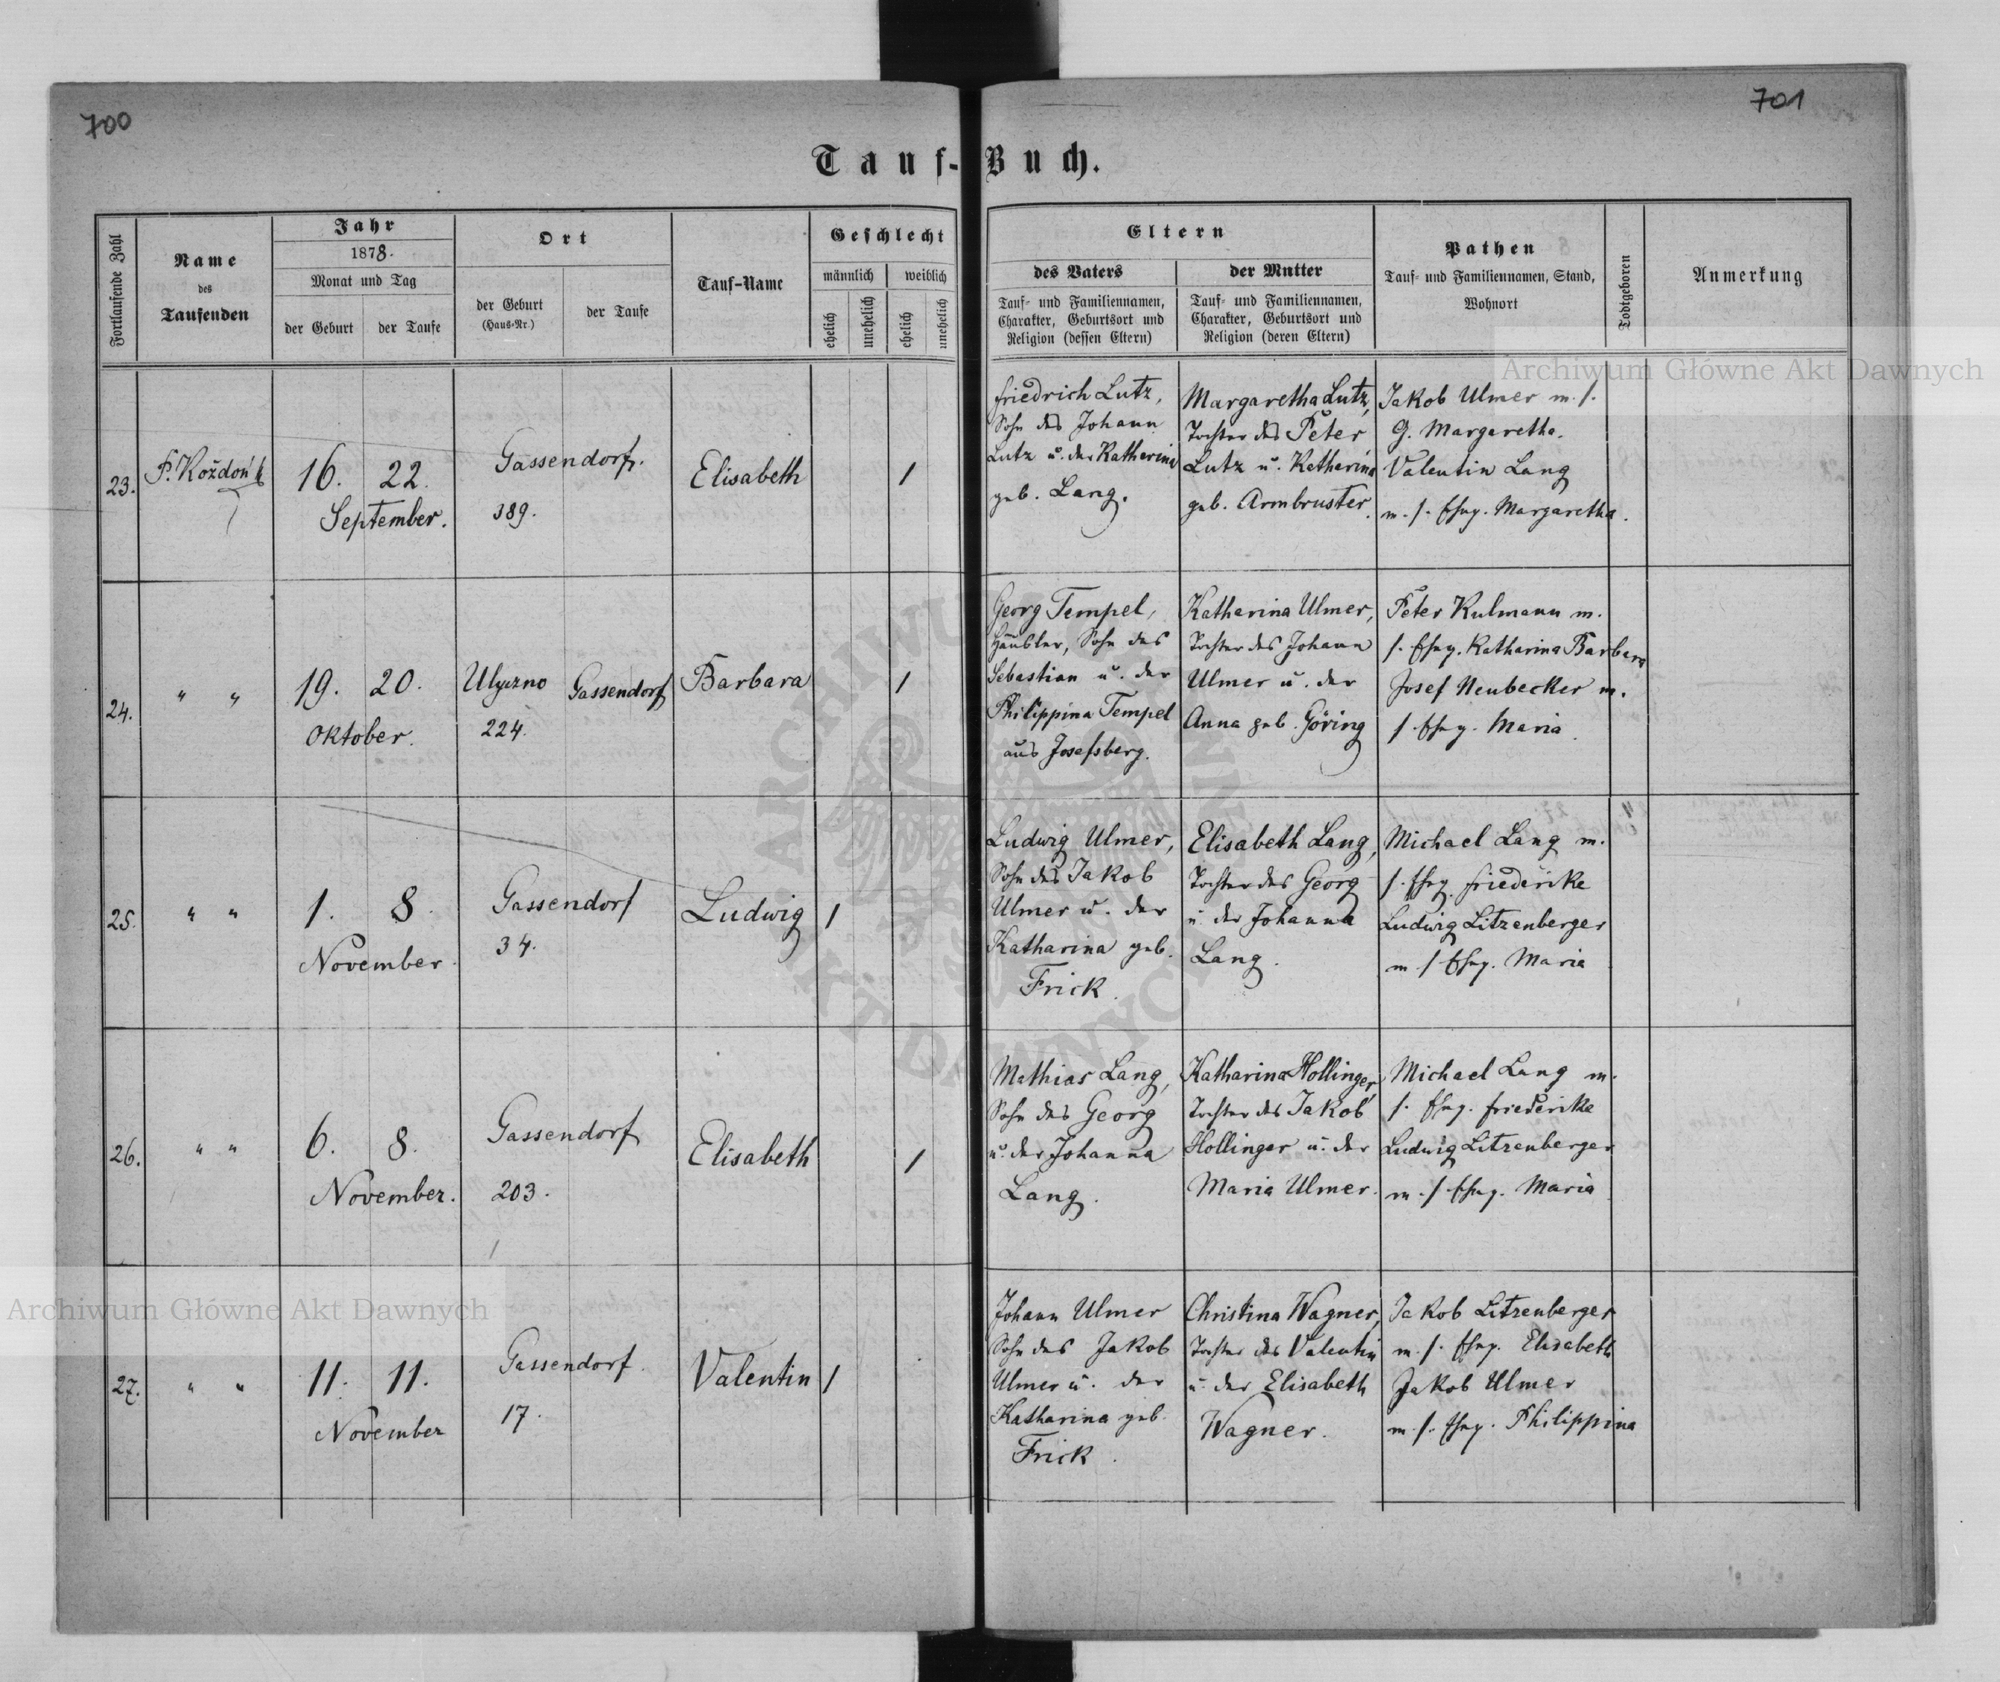 700
701
Tauf-Buch.
Fortlaufende Zahl
Name
des
Taufenden
Jahr
1878.
Monat und Tag
der Geburt
der Taufe
Ort
der Geburt
(Haus-Nr.)
der Taufe
Tauf-Name
Geschlecht
männlich
weiblich
ehelich
unehelich
ehelich
unehelich
Eltern
des Vaters
Tauf- und Familiennamen,
Charakter, Geburtsort und
Religion (dessen Eltern)
der Mutter
Tauf- und Familiennamen,
Charakter, Geburtsort und
Religion (deren Eltern)
Pathen
Tauf- und Familiennamen, Stand,
Wohnort
Todtgeboren
Anmerkung
23.
16.
22.
September.
Gassendorf.
389.
Elisabeth
1
Friedrich Lutz,
Sohn des Johann
Lutz u. der Katharina
geb. Lang.
Margaretha Lutz,
Tochter des Peter
Lutz u. Katharina
geb. Armbruster.
Jakob Ulmer m. s.
G. Margaretha.
Valentin Lang
m. s. Eheg. Margaretha.
24.
" "
19.
20.
Oktober.
Ulyczno
224.
Gassendorf
Barbara
1
Georg Tempel,
Häusler, Sohn des
Sebastian u. der
Philippina Tempel
aus Josefsberg.
Katharina Ulmer,
Tochter des Johann
Ulmer u. der
Anna geb. Göring
Peter Kulmann m.
s. Eheg. Katharina Barbara
Josef Neubecker m.
s. Eheg. Maria.
25.
" "
1.
8.
November.
Gassendorf
34.
Ludwig
1
Ludwig Ulmer,
Sohn des Jakob
Ulmer u. der
Katharina geb.
Frick.
Elisabeth Lang,
Tochter des Georg
u. der Johanna
Lang.
Michael Lang m.
s. Eheg. Friederike
Ludwig Litzenberger
m. s. Eheg. Maria
26.
" "
6.
8.
November.
Gassendorf
203.
Elisabeth
1
Mathias Lang,
Sohn des Georg
u. der Johanna
Lang.
Katharina Hollinger,
Tochter des Jakob
Hollinger u. der
Maria Ulmer.
Michael Lang m.
s. Eheg. Friederike
Ludwig Litzenberger
m. s. Eheg. Maria
27.
" "
11.
11.
November
Gassendorf.
17.
Valentin
1
Johann Ulmer
Sohn des Jakob
Ulmer u. der
Katharina geb.
Frick.
Christina Wagner,
Tochter des Valentin
u. der Elisabeth
Wagner.
Jakob Litzenberger
m. s. Eheg. Elisabeth
Jakob Ulmer
m. s. Eheg. Philippina
Archiwum Główne Akt Dawnych
Archiwum Główne Akt Dawnych